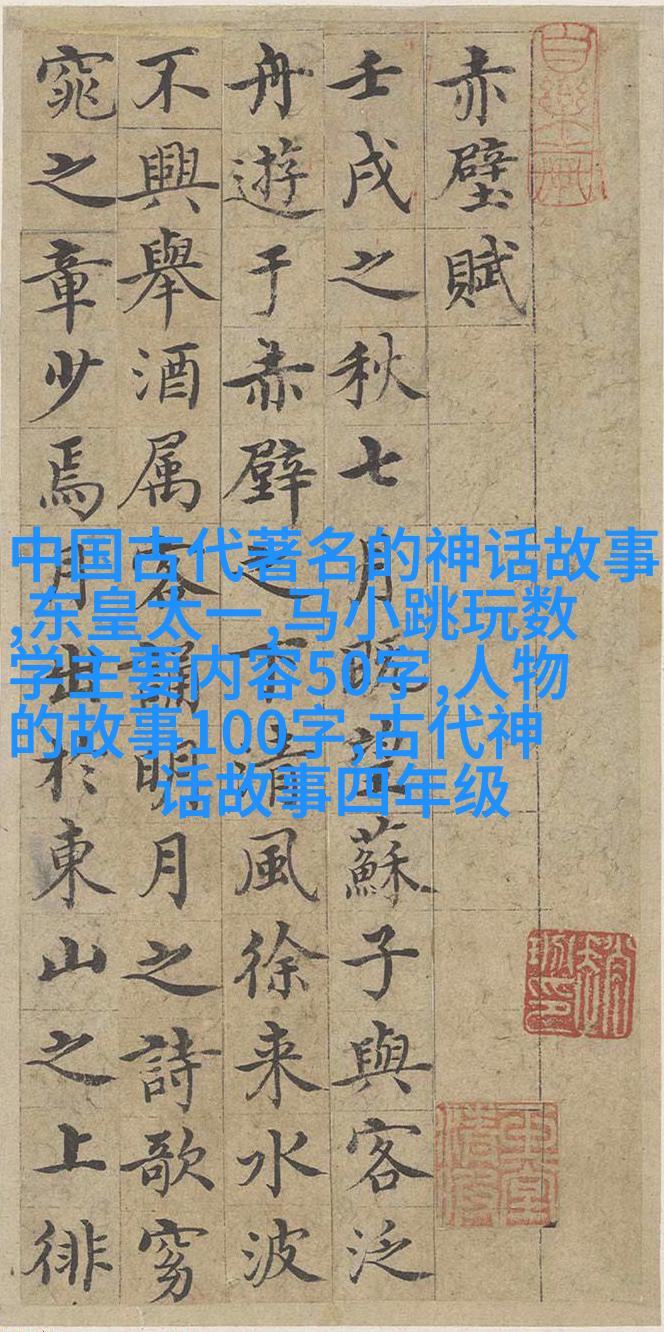 赤壁賦
壬戌之秋七月既望蘇子與客泛
舟遊于赤壁之下清風徐来水波
不興舉酒属客誦明月之詩歌窈
窕之章少焉月出於東山之上徘
中国古代著名的神话故事
,东皇太一,马小跳玩数
学主要内容50字,人物
的故事100字,古代神
话故事四年级